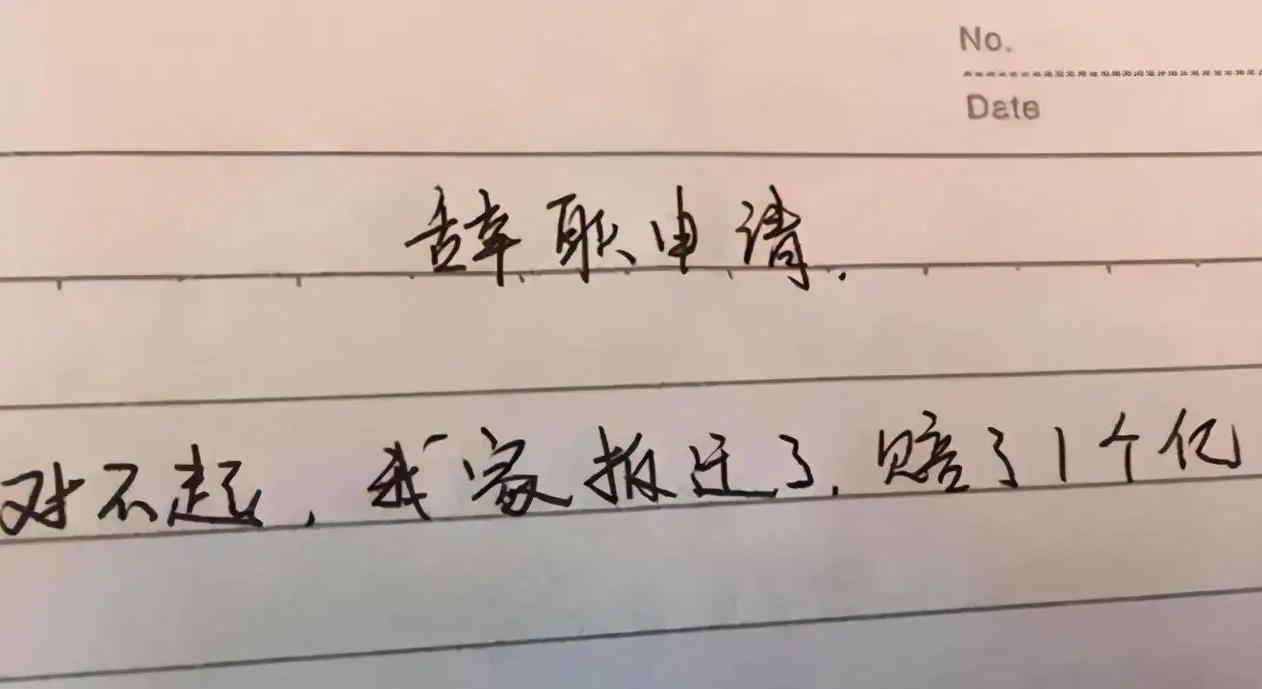 No.
Date
辞职申请.
对不起,我家拆迁了,赔了1个亿